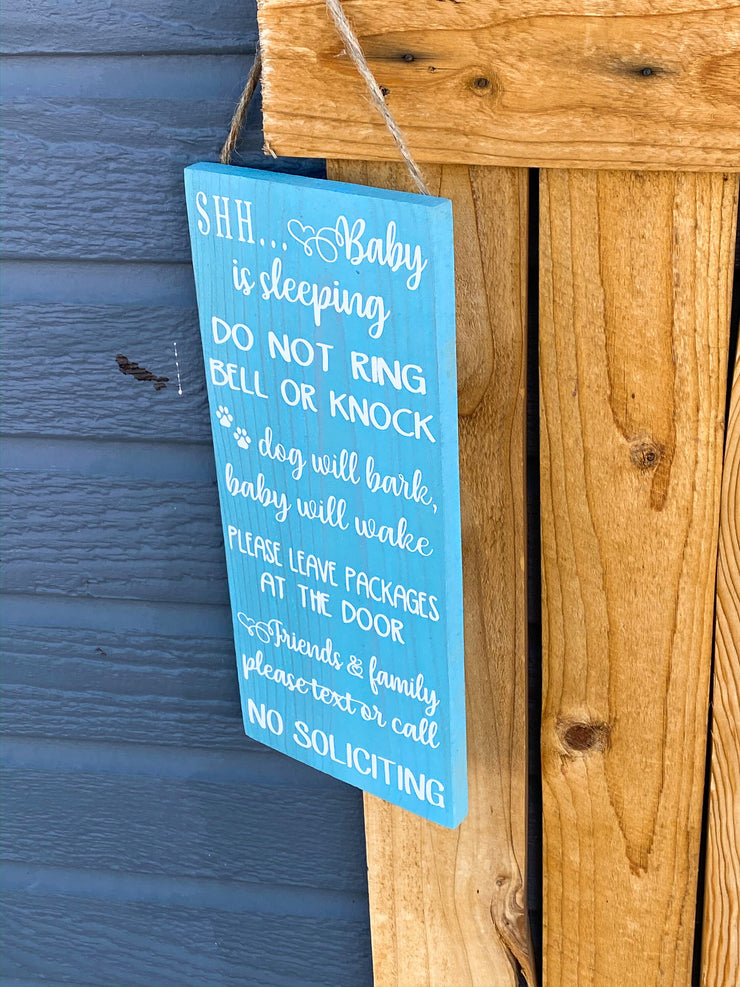 SHH... Baby
is sleeping
DO NOT RING
BELL OR KNOCK
dog will bark,
baby will wake
PLEASE LEAVE PACKAGES
AT THE DOOR
Friends & family
please text or call
NO SOLICITING